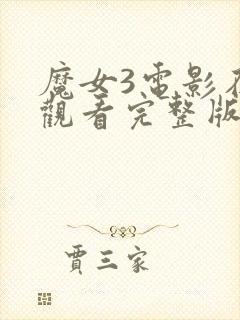 魔女3電影
觀看完整版
賈三家